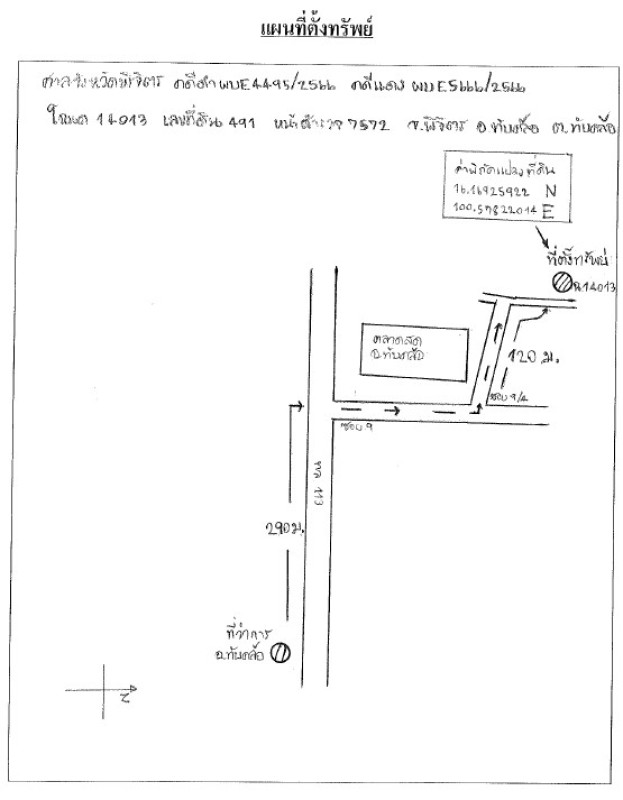 แผนที่ตั้งทรัพย์
ศาลจังหวัดพิจิตร คดีดำ ผบE4495/2566 คดีแดง ผบE5666/2566
โฉนด 14013 เลขที่ดิน 491 หน้าสำรวจ 7572 จ.พิจิตร อ.ทับคล้อ ต.ทับคล้อ
ค่าพิกัดแปลงที่ดิน
16.16925922 N
100.59822014 E
ที่ตั้งทรัพย์
ฉ.14013
ตลาดสด
อ.ทับคล้อ
120 ม.
ซอย 9/2
ซอย 9
ทล 113
290 ม.
ที่ว่าการ
อ.ทับคล้อ
N